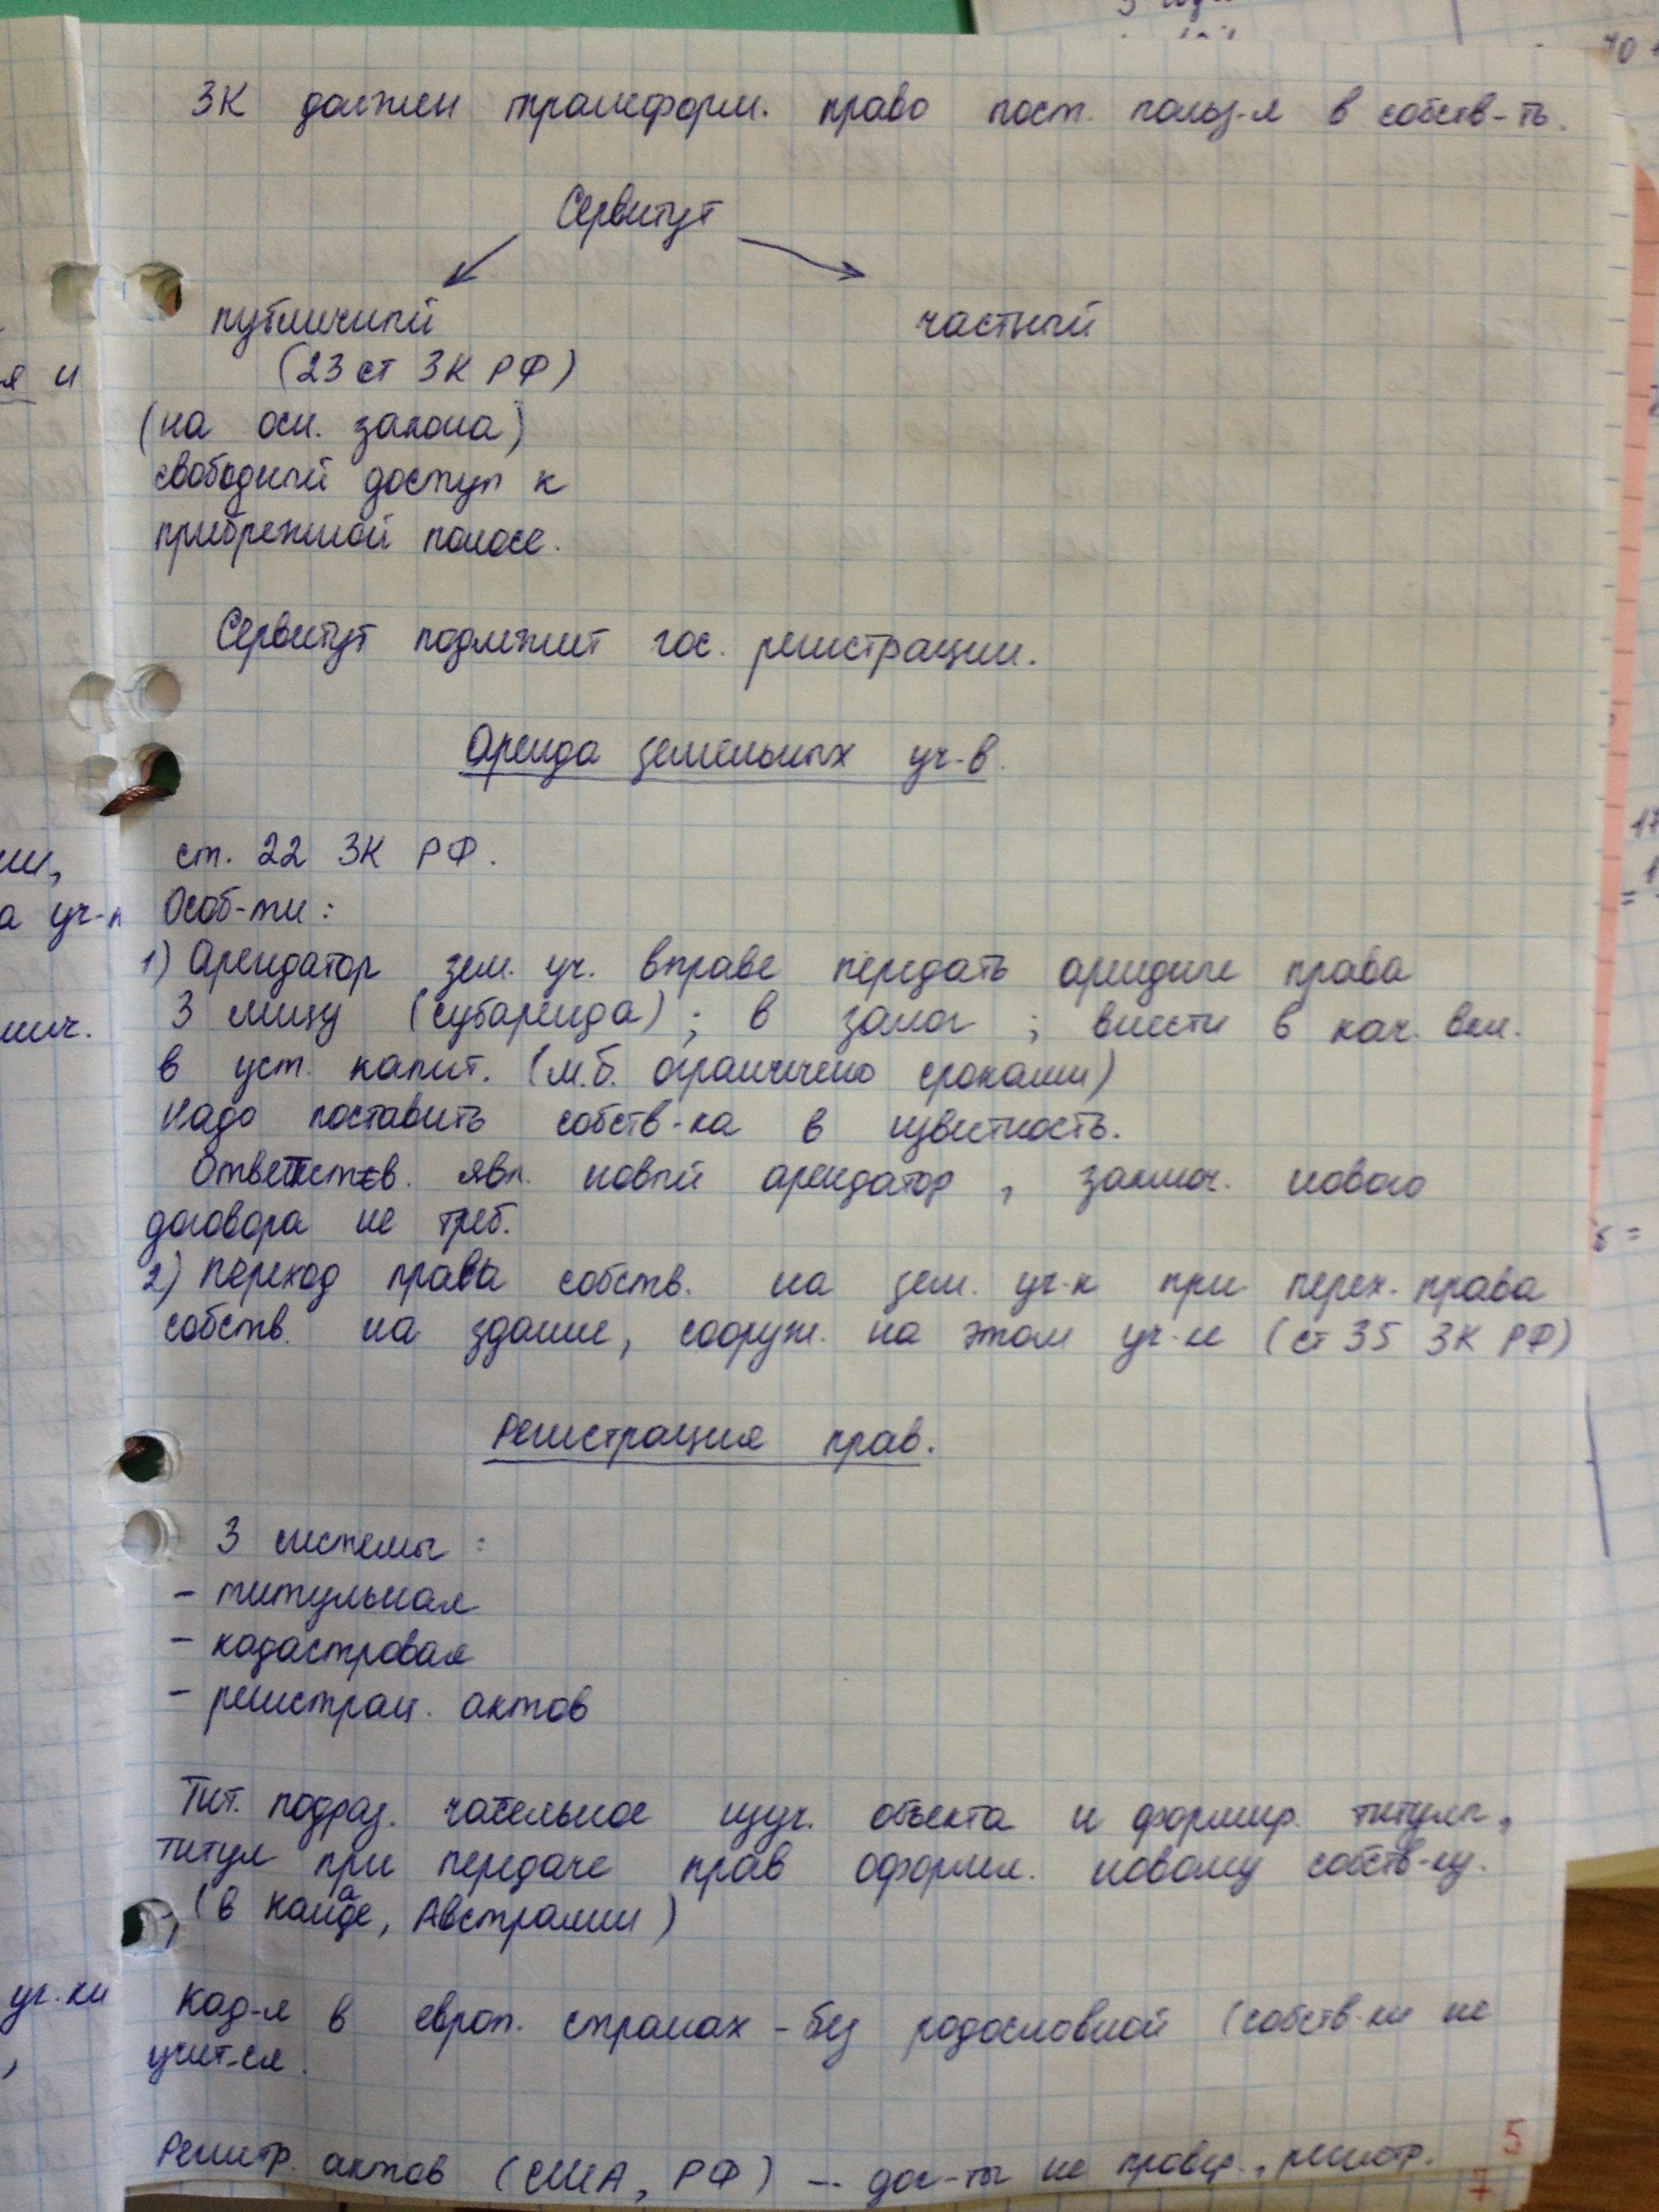 ЗК должен трансформ. право пост. польз-я в собств-ть.
Сервитут
публичный
частный
(23 ст ЗК РФ)
(на осн. закона)
свободный доступ к
прибрежной полосе.
Сервитут подлежит гос. регистрации.
Аренда земельных уч-в.
ст. 22 ЗК РФ.
Особ-ти:
1) Арендатор зем. уч. вправе передать арендные права
3 лицу (субаренда); в залог; внести в кач. вкл.
в уст. капит. (м.б. ограничено сроками)
Надо поставить собств-ка в известность.
Ответств. явл. новый арендатор, заключ. нового
договора не треб.
2) Переход права собств. на зем. уч-к при перех. права
собств. на здание, сооруж. на этом уч-ке (ст 35 ЗК РФ)
Регистрация прав.
3 системы:
- титульная
- кадастровая
- регистрац. актов
Тит. подраз. изуч. объекта и формир. титула,
титул при передаче прав оформл. новому собств-ку.
(в Канаде, Австралии)
Кад-я в европ. странах - без родословной (собств-ки не
учит-ся.
Регистр. актов (США, РФ) - док-ты не провер., регистр.
5
7
я и
ии,
а уч-к
нич.
уч-ки
,
10
17